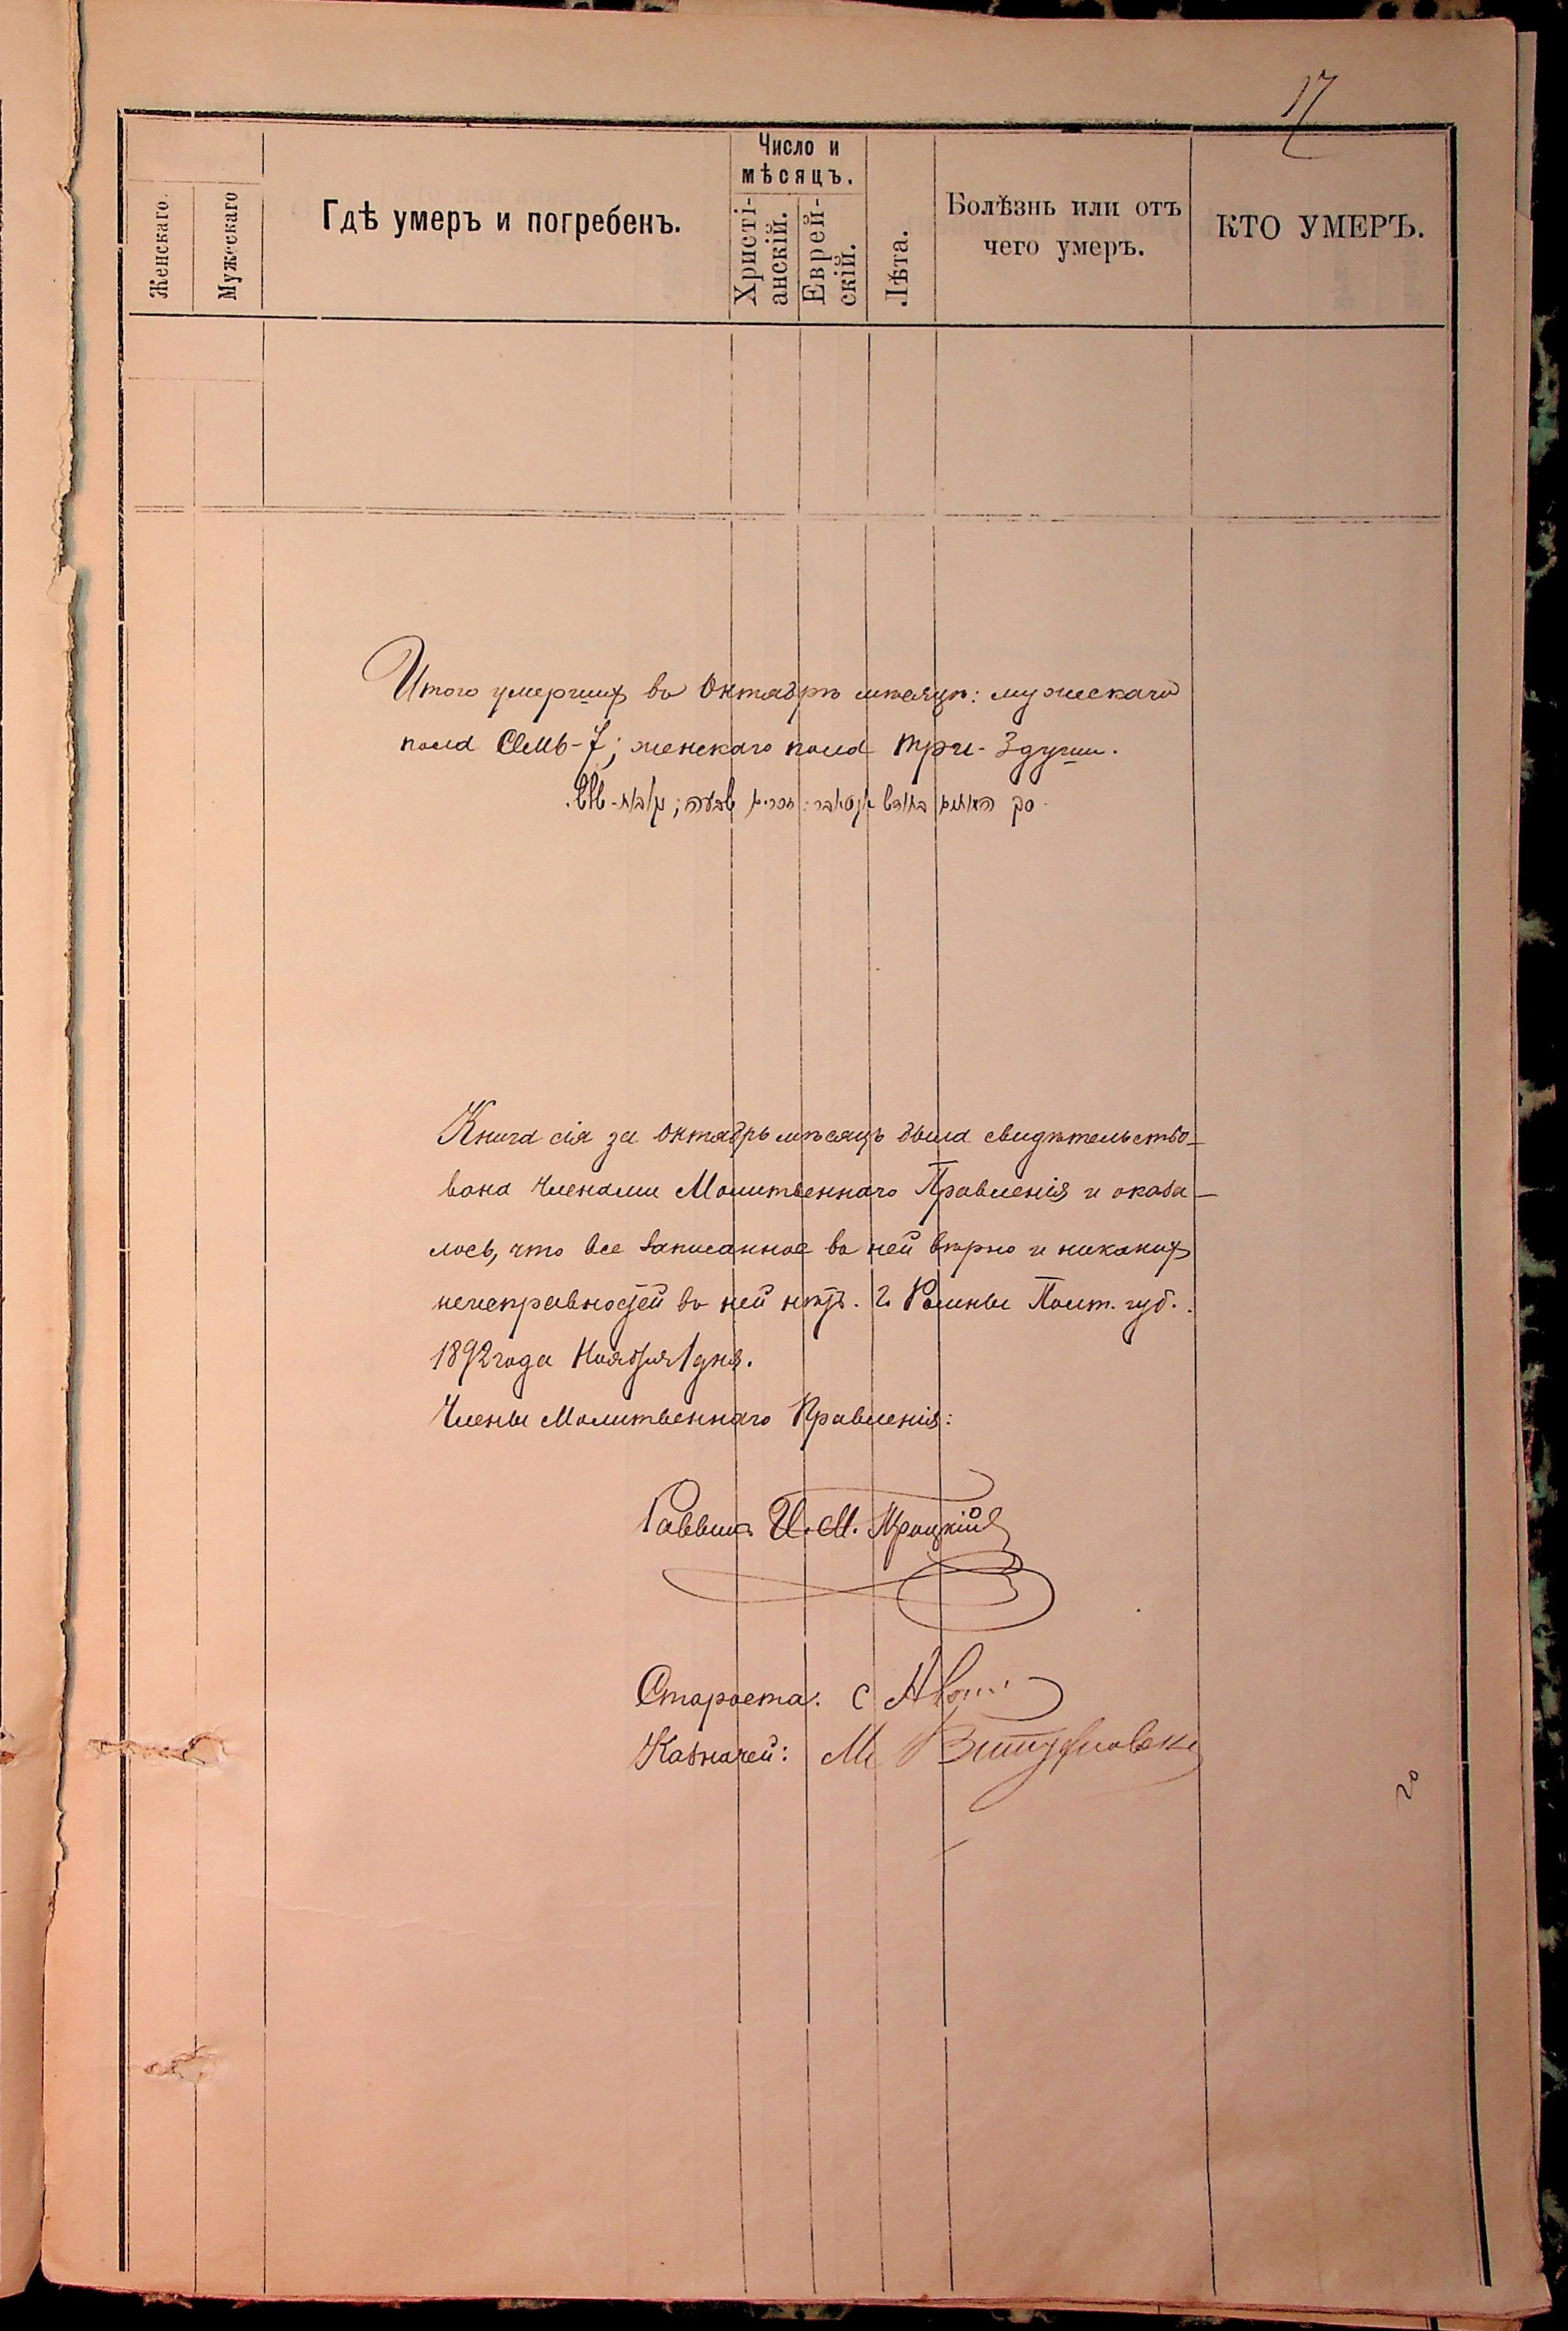 17
Женскаго.
Мужескаго
Гдѣ умеръ и погребенъ.
Число и
мѣсяцъ.
Христі-
анскій.
Еврей-
скій.
Лѣта.
Болѣзнь или отъ
чего умеръ.
КТО УМЕРЪ.
Итого умершихъ въ Октябрѣ мѣсяцѣ: мужескаго
пола Семь-7; женскаго пола три-3 души.
סך המתים בחדש אקטאבר: זכרים שבעה; נקבות-שלש.
Книга сія за Октябрь мѣсяцъ была свидѣтельство-
вана Членами Молитвеннаго Правленія и оказа-
лось, что все записанное въ ней вѣрно и никакихъ
неисправностей въ ней нѣтъ. Г. Ромны Полт. губ.
1892 года Ноября 1 дня.
Члены Молитвеннаго Правленія:
Раввинъ И. М.
Староста: С
Казначей: М
20